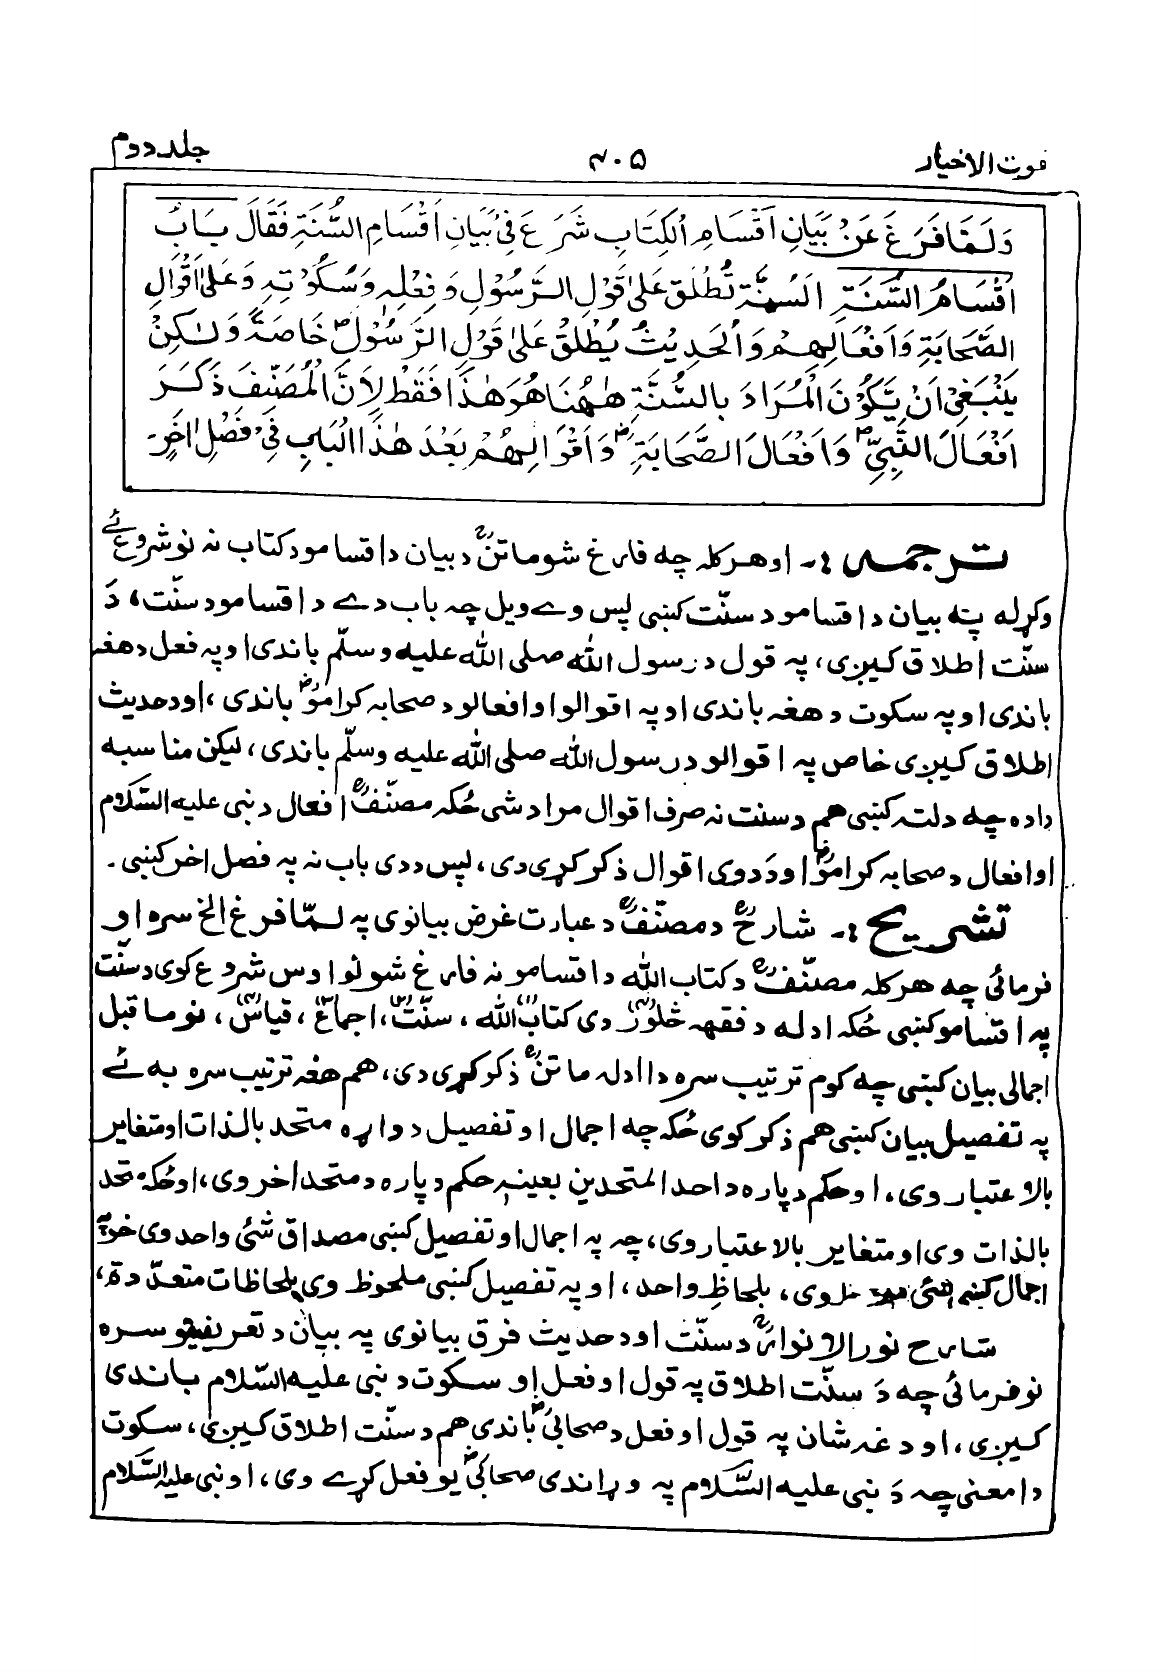 قوت الاخیار ۴۰۵ جلد دوم
وَلَمَّا فَرَغَ عَنْ بَيَانِ اَقْسَامِ الْكِتَابِ شَرَعَ فِیْ بَيَانِ اَقْسَامِ السُّنَّةِ فَقَالَ بَابُ
اَقْسَامُ السُّنَّةِ اَلسُّنَّةُ تُطْلَقُ عَلٰی قَوْلِ الرَّسُوْلِ وَفِعْلِهٖ وَسُكُوْتِهٖ وَعَلٰی اَقْوَالِ
الصَّحَابَةِ وَاَفْعَالِهِمْ وَالْحَدِيْثُ يُطْلَقُ عَلٰی قَوْلِ الرَّسُوْلِؐ خَاصَّةً وَلٰكِنْ
يَنْبَغِیْ اَنْ يَّكُوْنَ الْمُرَادُ بِالسُّنَّةِ هٰهُنَا هُوَ هٰذَا فَقَطْ لِاَنَّ الْمُصَنِّفَ ذَكَرَ
اَفْعَالَ النَّبِیِّؐ وَاَفْعَالَ الصَّحَابَةِؓ وَاَقْوَالِهِمْ بَعْدَ هٰذَا الْبَابِ فِیْ فَصْلٍ اٰخَرٍ۔
ترجمہ :۔ او هر کله چه فارغ شو ماتنؒ د بیان د اقسامو د کتاب نه نو شروع ئے
وکړله په بیان د اقسامو د سنّت کښی پس وے ویل چه باب دے د اقسامو د سنّت، دَ
سنّت اطلاق کیږی، په قول د رسول الله صلی الله علیه وسلّم باندی او په فعل د هغه
باندی او په سکوت د هغه باندی او په اقوالو او افعالو د صحابه کراموؓ باندی، او د حدیث
اطلاق کیږی خاص په اقوالو د رسول الله صلی الله علیه وسلّم باندی، لیکن مناسبه
داده چه دلته کښی هم د سنت نه صرف اقوال مراد شی ځکه مصنّفؒ افعال د نبی علیه السّلام
او افعال د صحابه کراموؓ او دَ دوی اقوال ذکر کړی دی، پس د دی باب نه په فصل اخر کښی۔
تشریح :۔ شارحؒ د مصنّفؒ د عبارت غرض بیانوی په لمّا فرغ الخ سره او
فرمائی چه هر کله مصنّفؒ د کتاب الله د اقسامو نه فارغ شو نو اوس شروع کوی د سنّت
په اقسامو کښی ځکه ادله د فقهه څلور دی کتاب الله، سنّت، اجماع، قیاس، نو ما قبل
اجمالی بیان کښی چه کوم ترتیب سره دا ادله ماتنؒ ذکر کړی دی، هم هغه ترتیب سره به ئے
په تفصیل بیان کښی هم ذکر کوی ځکه چه اجمال او تفصیل دواړه متحد بالذات او متغایر
بالاعتبار وی، او حکم دپاره د احد المتحدین بعینہٖ حکم دپاره د متحد اخر وی، او ځکه متحد
بالذات وی او متغایر بالاعتبار وی، چه په اجمال او تفصیل کښی مصداق شئ واحد وی خو په
اجمال کښی شئ وی، بلحاظِ واحد، او په تفصیل کښی ملحوظ وی بلحاظات متعدّدة،
شارح نور الانوارؒ د سنّت او د حدیث فرق بیانوی په بیان د تعریفیو سره
نو فرمائی چه دَ سنّت اطلاق په قول او فعل او سکوت د نبی علیه السّلام باندی
کیږی، او دغه شان په قول او فعل د صحابیؓ باندی هم د سنّت اطلاق کیږی، سکوت
دا معنی چه دَ نبی علیه السّلام په وړاندی صحابیؓ یو فعل کړے وی، او نبی علیه السّلام